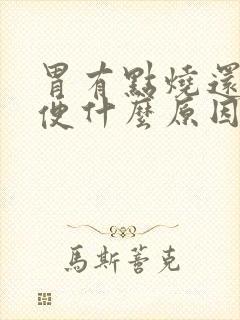 胃有點燒還
便什麼原因
馬斯菩克